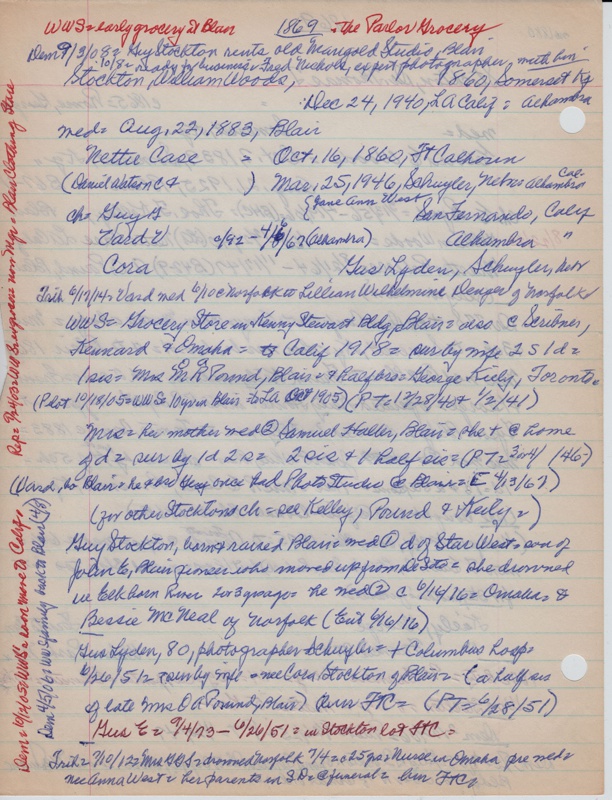 WWS = early grocery at Blair 1869 = the Parlor Grocery
Dem 9/3/08 = Guy Stockton rents old Marigold Studio, Blair
ready for business = Fred Nichols, expert photographer, with him
Stockton, William Woods, 1860, Somerset Ky
Dec 24, 1940, LA Calif = Alhambra
med = Aug, 22, 1883, Blair
Nettie Case = Oct, 16, 1860, Ft Calhoun
(Daniel Watson C & ) Mar, 25, 1946, Schuyler, Nebr = Alhambra Cal-
ch = Guy S {Jane Ann West San Fernando, Calif
Vard V 2/92 - 4/6/67 (Alhambra) Alhambra "
Cora Gus Lyden, Schuyler, Nebr
Trib 6/17/14 = Vard med 6/10 c Norfolk to Lillian Wilhelmina Denger of Norfolk
WWS = Grocery Store in Kenny Stewart Bldg, Blair = also c Scribner,
Kennard & Omaha = to Calif 1918 = sur by wife 2 s 1 d =
1 sis = Mrs Pound, Blair = & half bro = George Kiely, Toronto =
(Pilot 10/18/05 = WWS = 10 yrs in Blair = to La Oct 1905) (PT = 12/28/40 & 1/2/41)
Mrs = her mother med ② Samuel Haller, Blair = she + c home
of d = sur by 1 d 2 s = 2 sis & 1 half sis = (PT = 3/4/46 -)
(Vard, bo Blair = he & bro Guy once had Photo Studio @ Blair = E 4/13/67)
(for other Stockton ch = see Kelley, Pound & Kiely =)
Guy Stockton, born & raised Blair = med ① d of Star West = son of
John E, Blair pioneer who moved up from DeSoto = she drowned
in Elkhorn River 2 or 3 yrs ago = he med ② c 6/14/16 = Omaha = &
Bessie McNeal of Norfolk (Ent 6/16/16)
Gus Lyden, 80, photographer Schuyler = + Columbus hosp =
6/26/51 = sur by wife = nee Cora Stockton of Blair = (a half sis
of late Mrs O A Pound, Blair) bur FtC = (PT = 6/28/51)
Gus E = 9/4/73 - 6/26/51 = in Stockton lot FtC =
Trib = 7/10/12 = Mrs G S = drowned Norfolk 7/4 = a 25 yrs = Nurse in Omaha pre med =
nee Anna West = her parents in SD = funeral = bur FtC
Rep = WWS = Blair Clothing Store
Dem = WWS = soon move to Calif =
Dem 4/5/06 = WWS family back to Blair